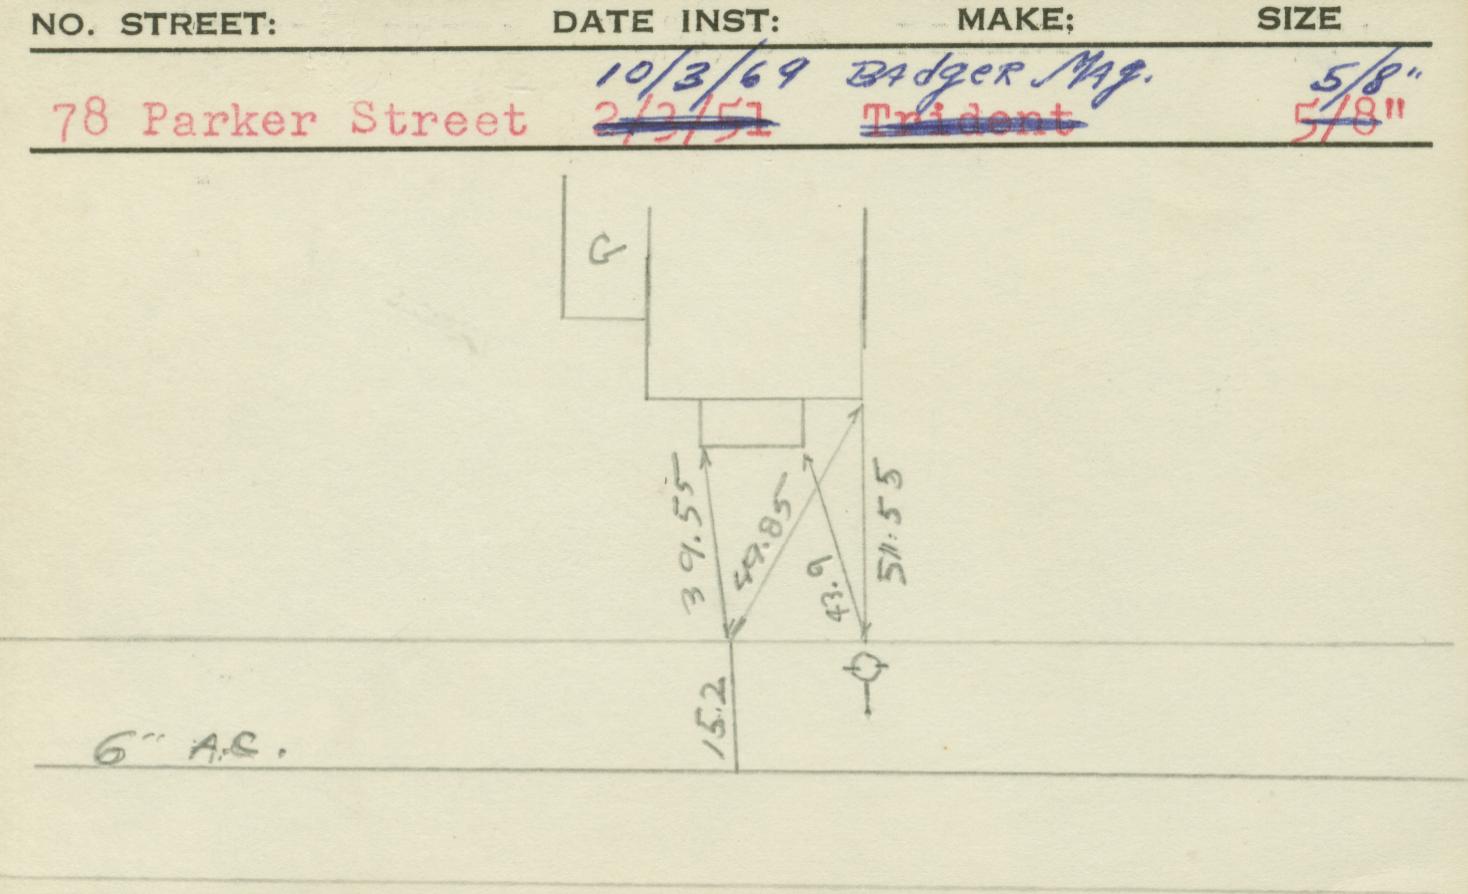 NO. STREET: DATE INST: MAKE; SIZE
10/3/69 Badger Mag. 5/8"
78 Parker Street 2/3/51 Trident 5/8"
G
39.55
49.85
43.9
51.55
15.2
6" A.C.